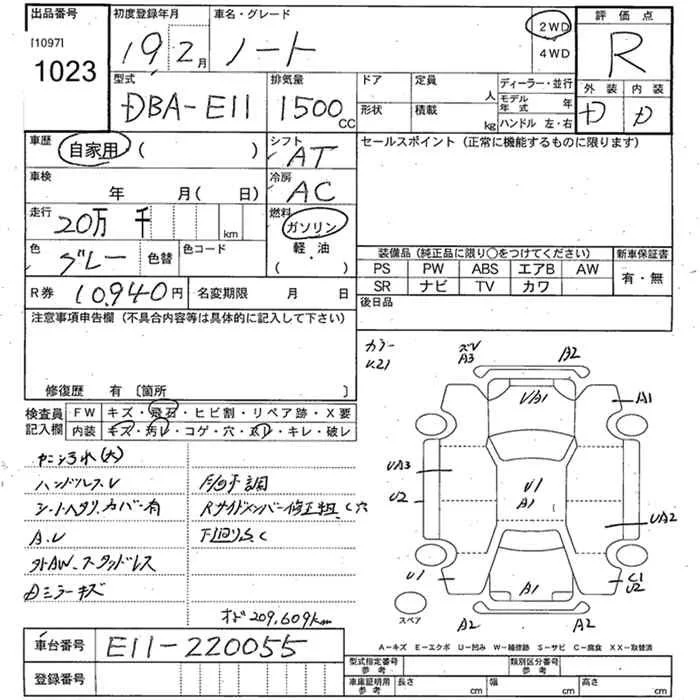 出品番号
[1097]
1023
初度登録年月
19年2月
車名・グレード
ノート
2WD
4WD
評価点
R
外装 内装
D D
型式
DBA-E11
排気量
1500 CC
ドア 定員 人
形状 積載 kg
ディーラー・並行
モデル年式 年
ハンドル 左・右
車歴 自家用 ( )
シフト AT
セールスポイント (正常に機能するものに限ります)
車検 年 月( 日)
冷房 AC
走行 20万 千 km
燃料 ガソリン
軽・油
( )
色 グレー 色替 色コード
装備品 (純正品に限り○をつけてください) 新車保証書
PS PW ABS エアB AW 有・無
SR ナビ TV カワ
R券 10,940円 名変期限 月 日
後日品
注意事項申告欄 (不具合内容等は具体的に記入して下さい)
修復歴 有 〔箇所 〕
検査員記入欄
FW キズ・飛石・ヒビ割・リペア跡・X要
内装 キズ・汚レ・コゲ・穴・スレ・キレ・破レ
ハンドルスレ
シートヘタリ、カバー有
A.U
社外AW、スタッドレス
Dミラーキズ
F回り調
Rサイドメンバー修正粗、C穴
下回りS,C
オド209,609km
カラー
U21
ズレ
A3
A2
UA1
A1
UA3
U1
A1
U2
UA2
U1
C1
U2
A1
A2
A2
スペア
A−キズ E−エクボ U−凹み W−補修跡 S−サビ C−腐食 XX−取替済
車台番号 E11-220055
登録番号
型式指定番号 参考
類別区分番号 参考
車庫証明用 参考 長さ cm 幅 cm 高さ cm